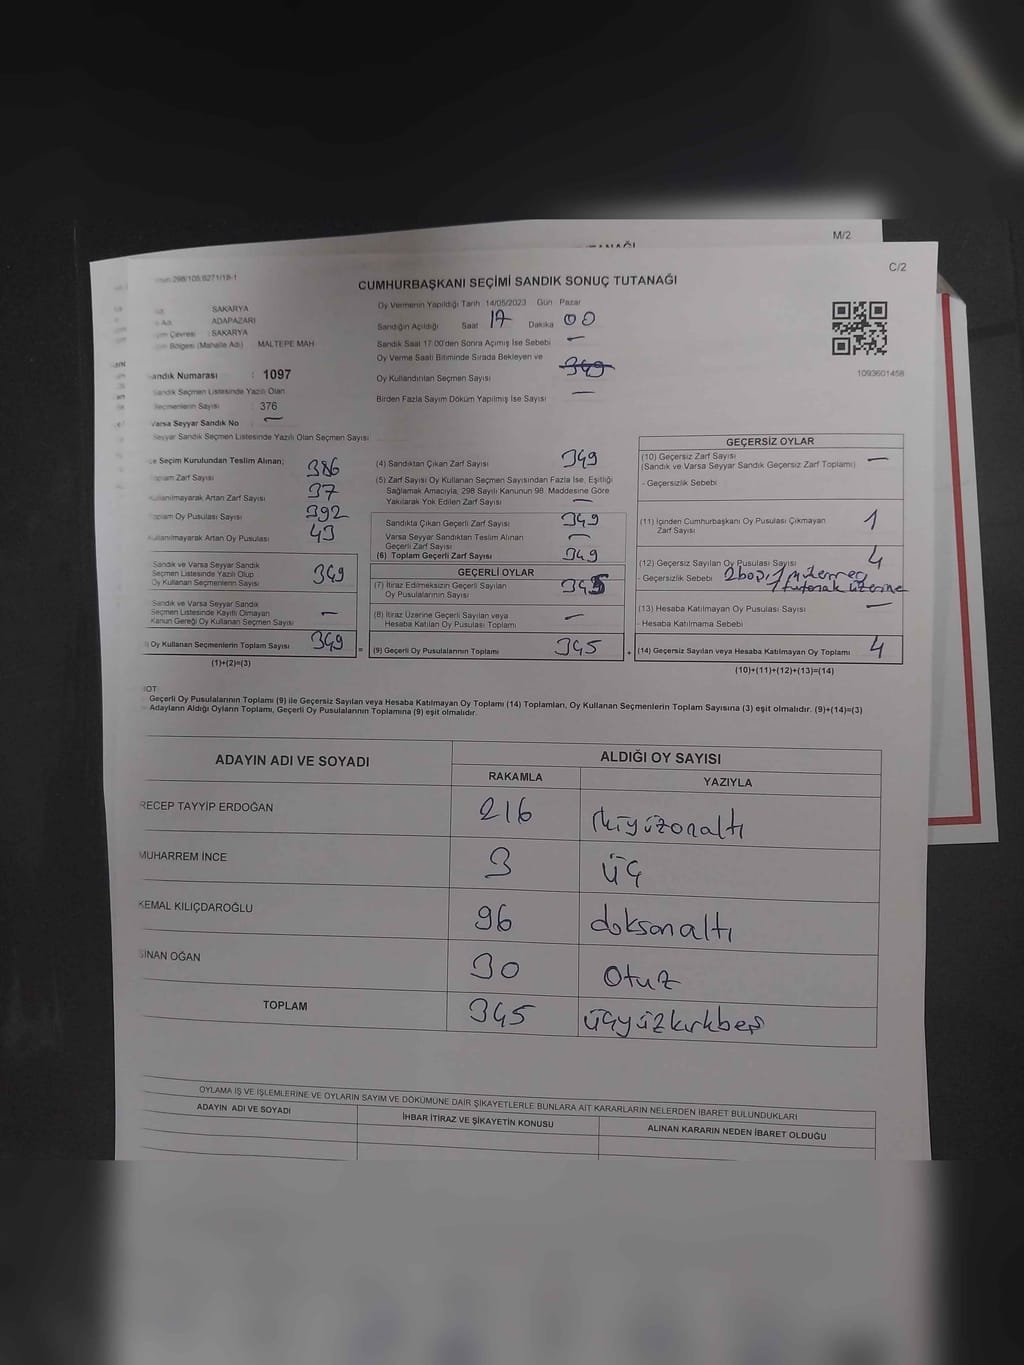 TANAĞI
M/2
298/105/6271/18-1
C/2
CUMHURBAŞKANI SEÇİMİ SANDIK SONUÇ TUTANAĞI
SAKARYA
Adı ADAPAZARI
Çevresi : SAKARYA
Bölgesi (Mahalle Adı) MALTEPE MAH
Sandık Numarası : 1097
Sandık Seçmen Listesinde Yazılı Olan
Seçmenlerin Sayısı : 376
Varsa Seyyar Sandık No —
Seyyar Sandık Seçmen Listesinde Yazılı Olan Seçmen Sayısı
Oy Vermenin Yapıldığı Tarih 14/05/2023 Gün Pazar
Sandığın Açıldığı Saat 17 Dakika 00
Sandık Saat 17:00'den Sonra Açımış İse Sebebi —
Oy Verme Saati Bitiminde Sırada Bekleyen ve
Oy Kullandırılan Seçmen Sayısı 349
Birden Fazla Sayım Döküm Yapılmış İse Sayısı —
1093601458
İlçe Seçim Kurulundan Teslim Alınan;
Toplam Zarf Sayısı 386
Kullanılmayarak Artan Zarf Sayısı 37
Toplam Oy Pusulası Sayısı 392
Kullanılmayarak Artan Oy Pusulası 43
Sandık ve Varsa Seyyar Sandık
Seçmen Listesinde Yazılı Olup
Oy Kullanan Seçmenlerin Sayısı 349
Sandık ve Varsa Seyyar Sandık
Seçmen Listesinde Kayıtlı Olmayan
Kanun Gereği Oy Kullanan Seçmen Sayısı —
Oy Kullanan Seçmenlerin Toplam Sayısı 349 =
(1)+(2)=(3)
(4) Sandıktan Çıkan Zarf Sayısı 349
(5) Zarf Sayısı Oy Kullanan Seçmen Sayısından Fazla İse, Eşitliği
Sağlamak Amacıyla, 298 Sayılı Kanunun 98. Maddesine Göre
Yakılarak Yok Edilen Zarf Sayısı —
Sandıkta Çıkan Geçerli Zarf Sayısı 349
Varsa Seyyar Sandıktan Teslim Alınan
Geçerli Zarf Sayısı —
(6) Toplam Geçerli Zarf Sayısı 349
GEÇERLİ OYLAR
(7) İtiraz Edilmeksizin Geçerli Sayılan
Oy Pusulalarının Sayısı 345
(8) İtiraz Üzerine Geçerli Sayılan veya
Hesaba Katılan Oy Pusulası Toplamı —
(9) Geçerli Oy Pusulalarının Toplamı 345 +
GEÇERSİZ OYLAR
(10) Geçersiz Zarf Sayısı —
(Sandık ve Varsa Seyyar Sandık Geçersiz Zarf Toplamı)
- Geçersizlik Sebebi
(11) İçinden Cumhurbaşkanı Oy Pusulası Çıkmayan 1
Zarf Sayısı
(12) Geçersiz Sayılan Oy Pusulası Sayısı 4
- Geçersizlik Sebebi 2 boş, 1
üzerine
(13) Hesaba Katılmayan Oy Pusulası Sayısı —
- Hesaba Katılmama Sebebi
(14) Geçersiz Sayılan veya Hesaba Katılmayan Oy Toplamı 4
(10)+(11)+(12)+(13)=(14)
NOT:
Geçerli Oy Pusulalarının Toplamı (9) ile Geçersiz Sayılan veya Hesaba Katılmayan Oy Toplamı (14) Toplamları, Oy Kullanan Seçmenlerin Toplam Sayısına (3) eşit olmalıdır. (9)+(14)=(3)
Adayların Aldığı Oyların Toplamı, Geçerli Oy Pusulalarının Toplamına (9) eşit olmalıdır.
ADAYIN ADI VE SOYADI
ALDIĞI OY SAYISI
RAKAMLA YAZIYLA
RECEP TAYYİP ERDOĞAN 216 ikiyüzonaltı
MUHARREM İNCE 3 üç
KEMAL KILIÇDAROĞLU 96 doksanaltı
SİNAN OĞAN 30 Otuz
TOPLAM 345 üçyüzkırkbeş
OYLAMA İŞ VE İŞLEMLERİNE VE OYLARIN SAYIM VE DÖKÜMÜNE DAİR ŞİKAYETLERLE BUNLARA AİT KARARLARIN NELERDEN İBARET BULUNDUKLARI
ADAYIN ADI VE SOYADI İHBAR İTİRAZ VE ŞİKAYETİN KONUSU ALINAN KARARIN NEDEN İBARET OLDUĞU